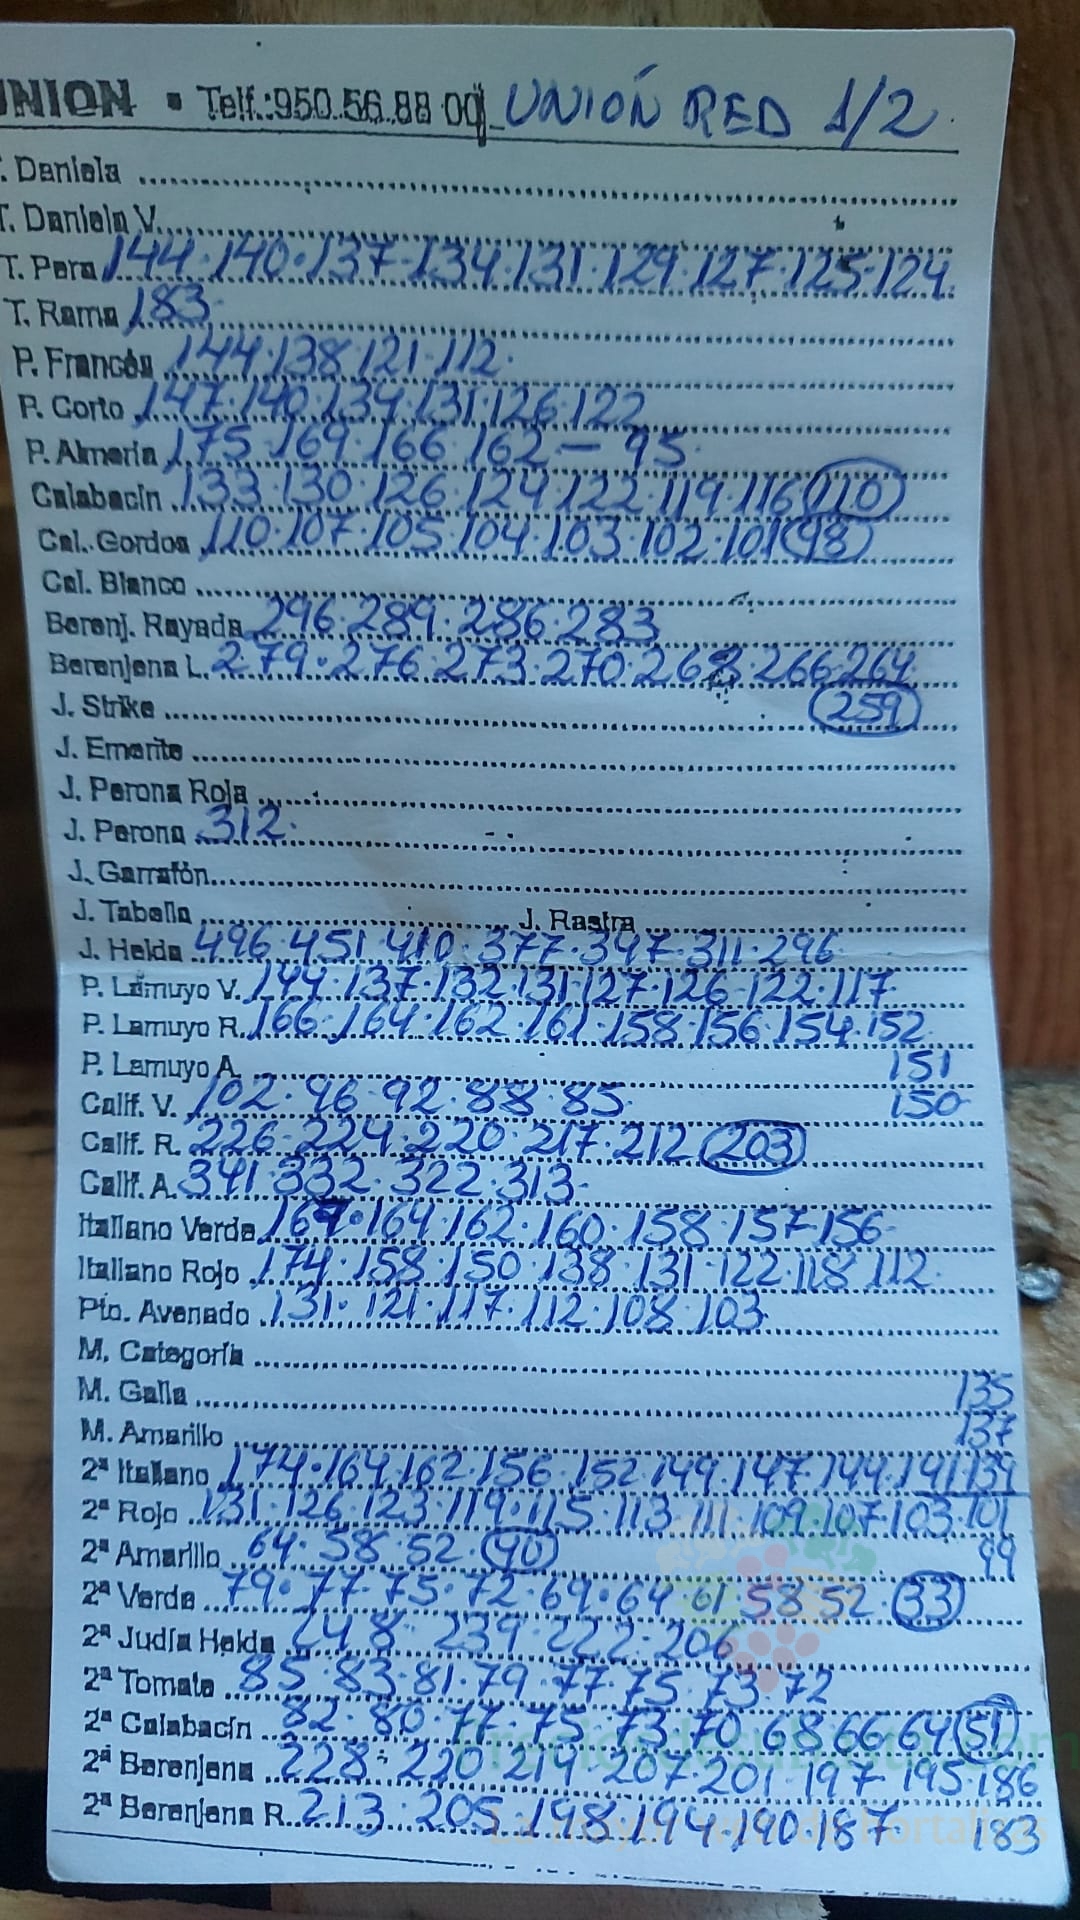 UNION • Telf.:950.56.88 00 UNIÓN RED 1/2
T. Daniela
T. Daniela V.
T. Pera 144·140·137·134·131·129·127·125·124
T. Rama 183
P. Francés 144·138·121·112
P. Corto 147·140·134·131·126·122
P. Almería 175·169·166·162 – 95
Calabacín 133·130·126·124·122·119·116 110
Cal. Gordos 110·107·105·104·103·102·101 98
Cal. Blanco
Berenj. Rayada 296·289·286·283
Berenjena L. 279·276·273·270·268·266·264
J. Strike 259
J. Emerite
J. Perona Roja
J. Perona 312
J. Garrafón
J. Tabella J. Rastra
J. Helda 496·451·410·377·347·311·296
P. Lamuyo V. 144·137·132·131·127·126·122·117
P. Lamuyo R. 166·164·162·161·158·156·154·152
P. Lamuyo A. 151
Calif. V. 102·96·92·88·85 150
Calif. R. 226·224·220·217·212 203
Calif. A. 341·332·322·313
Italiano Verde 167·164·162·160·158·157·156
Italiano Rojo 174·158·150·138·131·122·118·112
Pto. Avenado 131·121·117·112·108·103
M. Categoría
M. Galia 135
M. Amarillo 137
2ª Italiano 174·164·162·156·152·149·147·144·141·139
2ª Rojo 131·126·123·119·115·113·111·109·107·103·101
2ª Amarillo 64·58·52 40 99
2ª Verde 79·77·75·72·69·64·61·58·52 33
2ª Judía Helda 248·239·222·206
2ª Tomate 85·83·81·79·77·75·73·72
2ª Calabacín 82·80·77·75·73·70·68·66·64 51
2ª Berenjena 228·220·214·207·201·197·195·186
2ª Berenjena R. 213·205·198·194·190·187 183